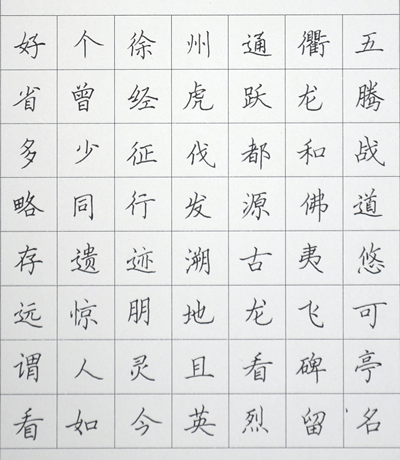 好个徐州通衢五
省曾经虎跃龙腾
多少征伐都和战
略同行发源佛道
存遗迹溯古夷悠
远惊朋地龙飞可
谓人灵且看碑亭
看如今英烈留名